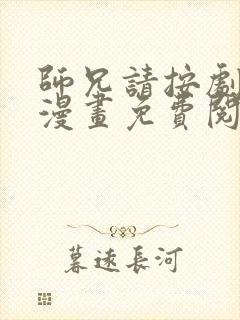 師兄請按劇
漫畫免費閱
暮遠長河